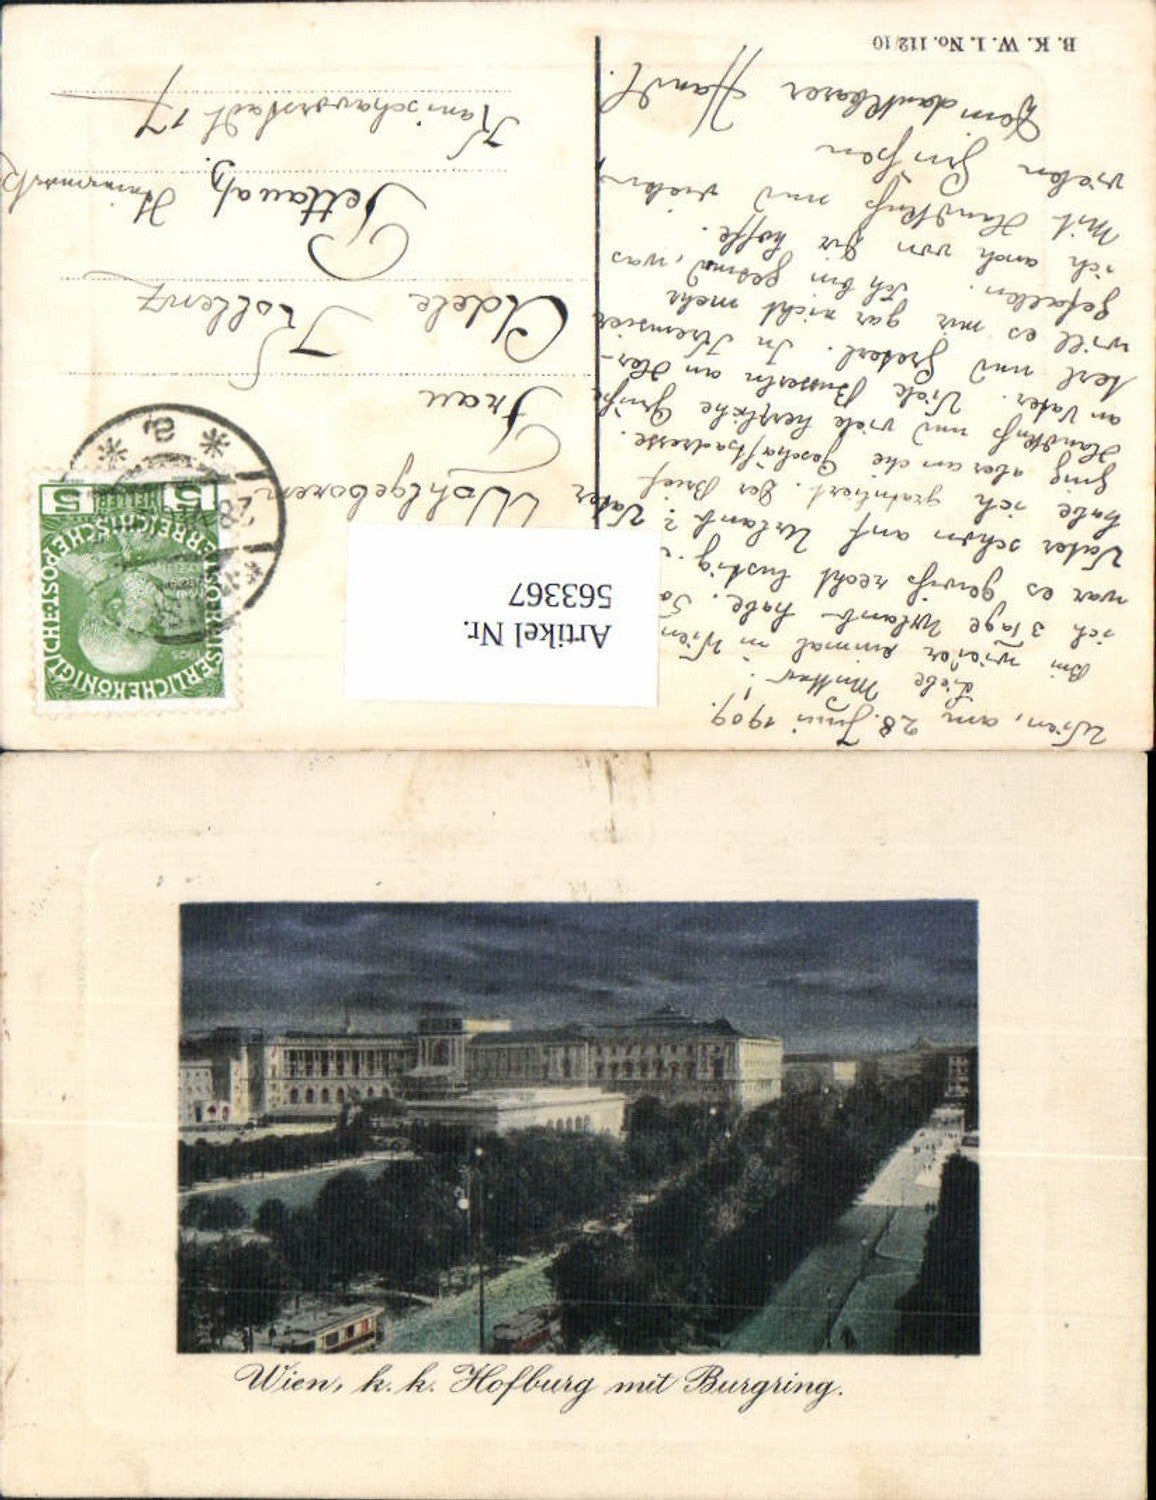 B. K. W. I. No. 112/10
Wien, am 28. Juni 1909.
Liebe Mutter!
Bin wieder einmal in Wien
ich 3 Tage Urlaub habe.
war es gewiß recht lustig.
Vater schon auf Urlaub? Vater
habe ich gratuliert. Der Brief
ging aber an die Geschäftsadresse.
Handkuß und viele herzliche Grüße
an Vater. Viele Busserln an Her-
terl und Greterl. In Kremsier
will es mir gar nicht mehr
gefallen. Ich bin gesund, was
ich auch von Dir hoffe.
Mit Handkuß und vielen,
vielen Grüßen
Dein dankbarer Hansl.
Wohlgeboren
Frau
Adele Kollenz
Pettau a/D.
Kanischavorstadt 17
KAISERLICHEKÖNIGLICHE ÖSTERREICHISCHE POST
5 HELLER 5
1908
Artikel Nr.
563367
Wien, k. k. Hofburg mit Burgring.